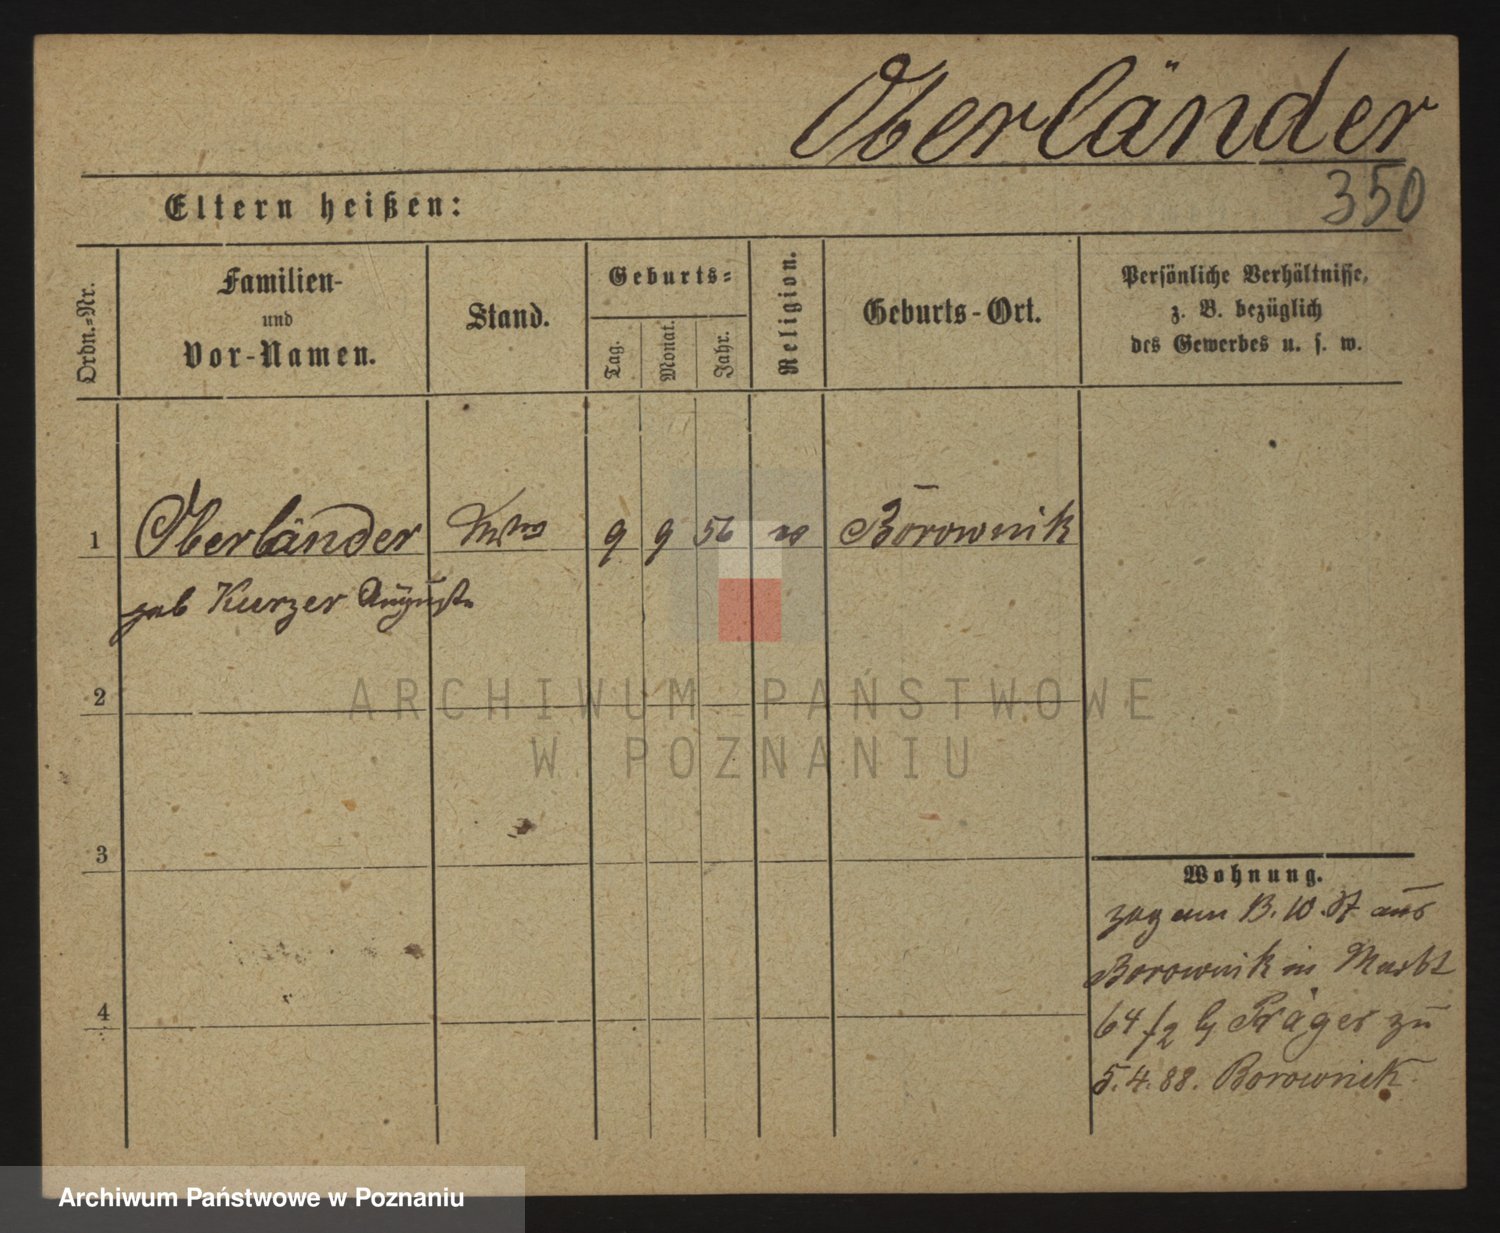 Oberländer
350
Eltern heißen:
Ordn.-Nr.
Familien-
und
Vor-Namen.
Stand.
Geburts-
Tag.
Monat.
Jahr.
Religion.
Geburts-Ort.
Persönliche Verhältnisse,
z. B. bezüglich
des Gewerbes u. s. w.
1 Oberländer 9 9 56 Borownik
geb Kurzer Auguste
2
3
4
Wohnung.
zog am 13.10.87 aus
Borownik in Markt
64/2 b Präger zu
5.4.88. Borownik
ARCHIWUM PAŃSTWOWE
W POZNANIU
Archiwum Państwowe w Poznaniu